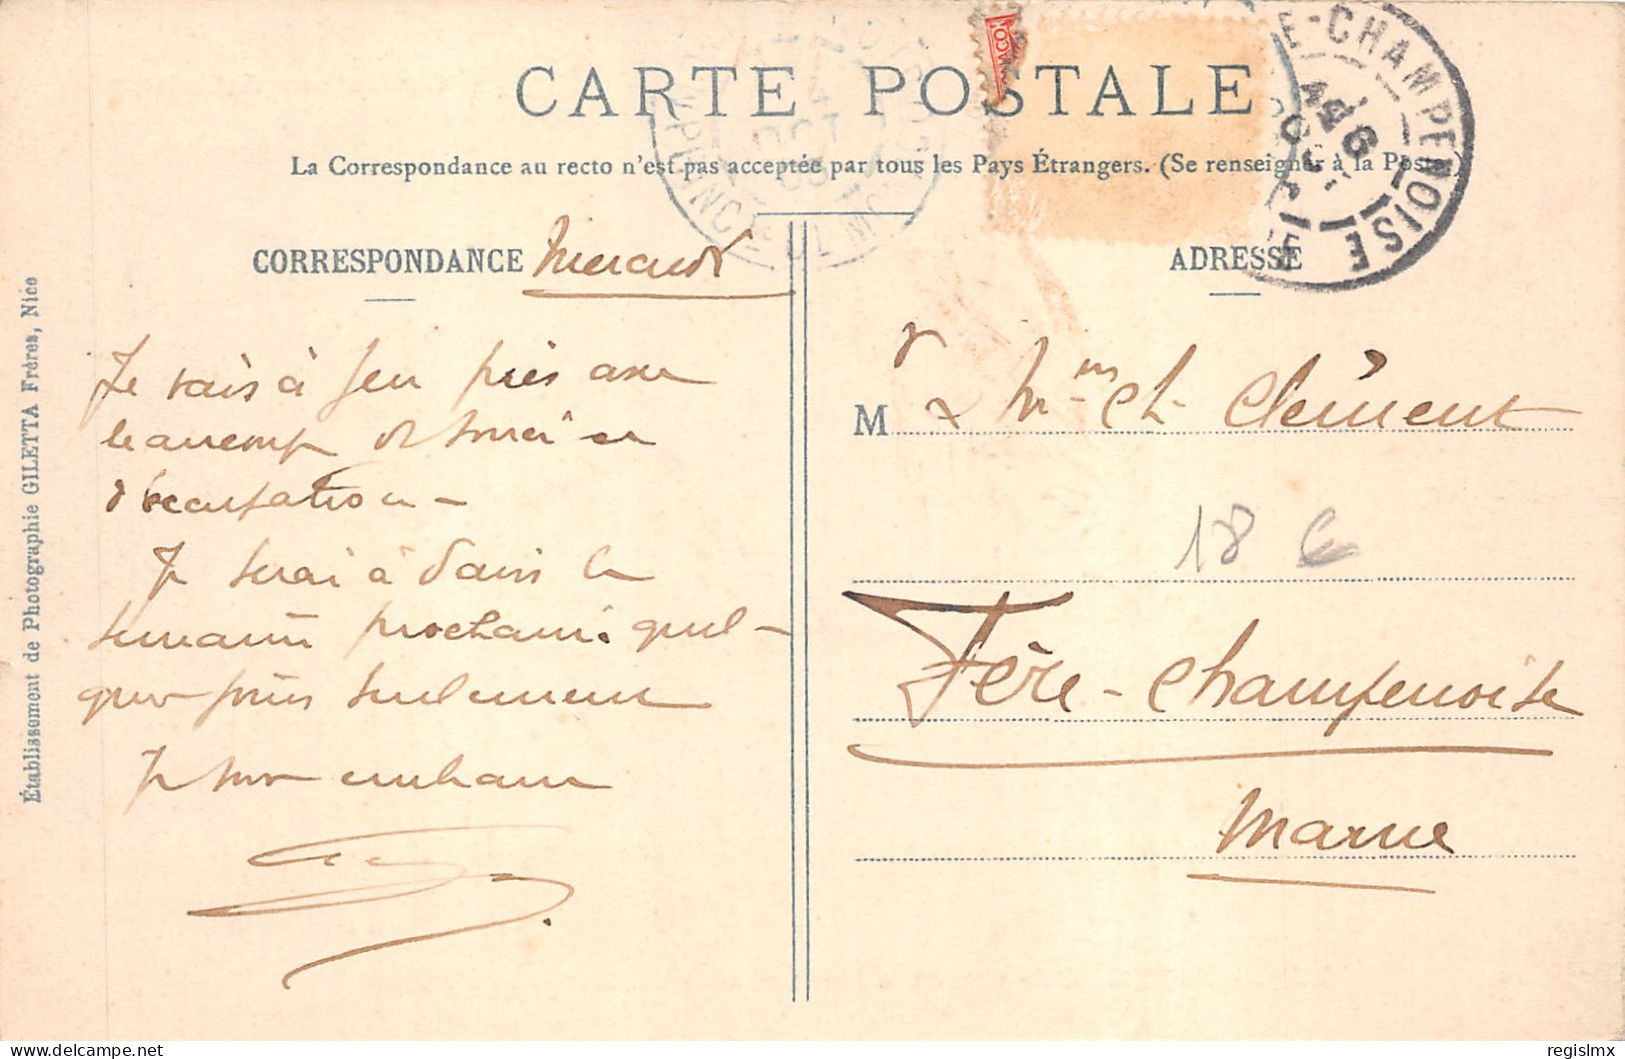 CARTE POSTALE
La Correspondance au recto n'est pas acceptée par tous les Pays Étrangers. (Se renseigner à la Poste)
CORRESPONDANCE
Je vais à peu près avec
beaucoup de
Je serai à Paris la
semaine prochaine quel-
que jours seulement
Je vous embrasse
ADRESSE
M r & Mme Ch. Clément
18 €
Fère-Champenoise
Marne
E-CHAMPENOISE
Établissement de Photographie GILETTA Frères, Nice
MONACO
regislmx